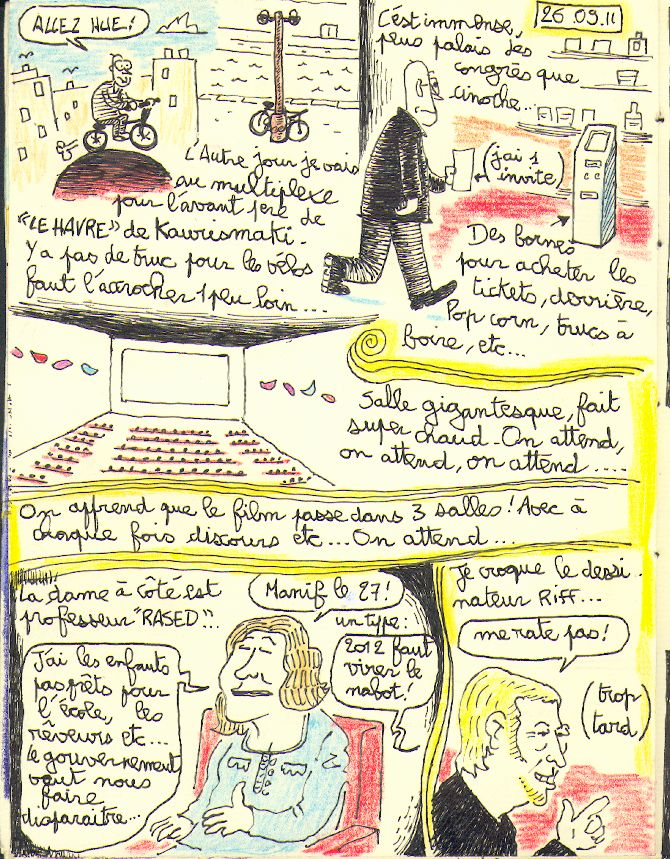 ALLEZ HUE!
L'Autre jour je vais
au multiplexe
pour l'avant 1ère de
"LE HAVRE" de Kaurismaki.
Y a pas de truc pour les vélos
faut l'accrocher 1 peu loin...
26.09.11
C'est immense,
plus palais des
congrès que
cinoche...
(j'ai 1
invite)
Des bornes
pour acheter les
tickets, derrière,
Pop corn, trucs à
boire, etc...
Salle gigantesque, fait
super chaud - On attend,
on attend, on attend....
On apprend que le film passe dans 3 salles! Avec à
chaque fois discours etc... On attend...
La dame à côté est
professeur "RASED"...
Manif le 27!
un type:
2012 faut
virer le
nabot!
J'ai les enfants
pas prêts pour
l'école, les
rêveurs etc...
Le gouvernement
veut nous
faire
disparaître...
Je croque le dessi-
nateur RIFF...
me rate pas!
(trop
tard)